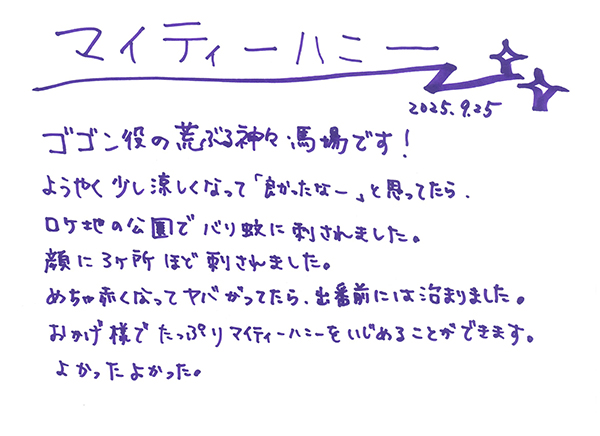 マイティーハニー
2025.9.25
ゴゴン役の荒ぶる神々馬場です!
ようやく少し涼しくなって「良かったなー」と思ってたら、
ロケ地の公園でバリ蚊に刺されました。
顔に3ヶ所ほど刺されました。
めちゃ赤くなってヤバがってたら、出番前には治まりました。
おかげ様でたっぷりマイティーハニーをいじめることができます。
よかったよかった。